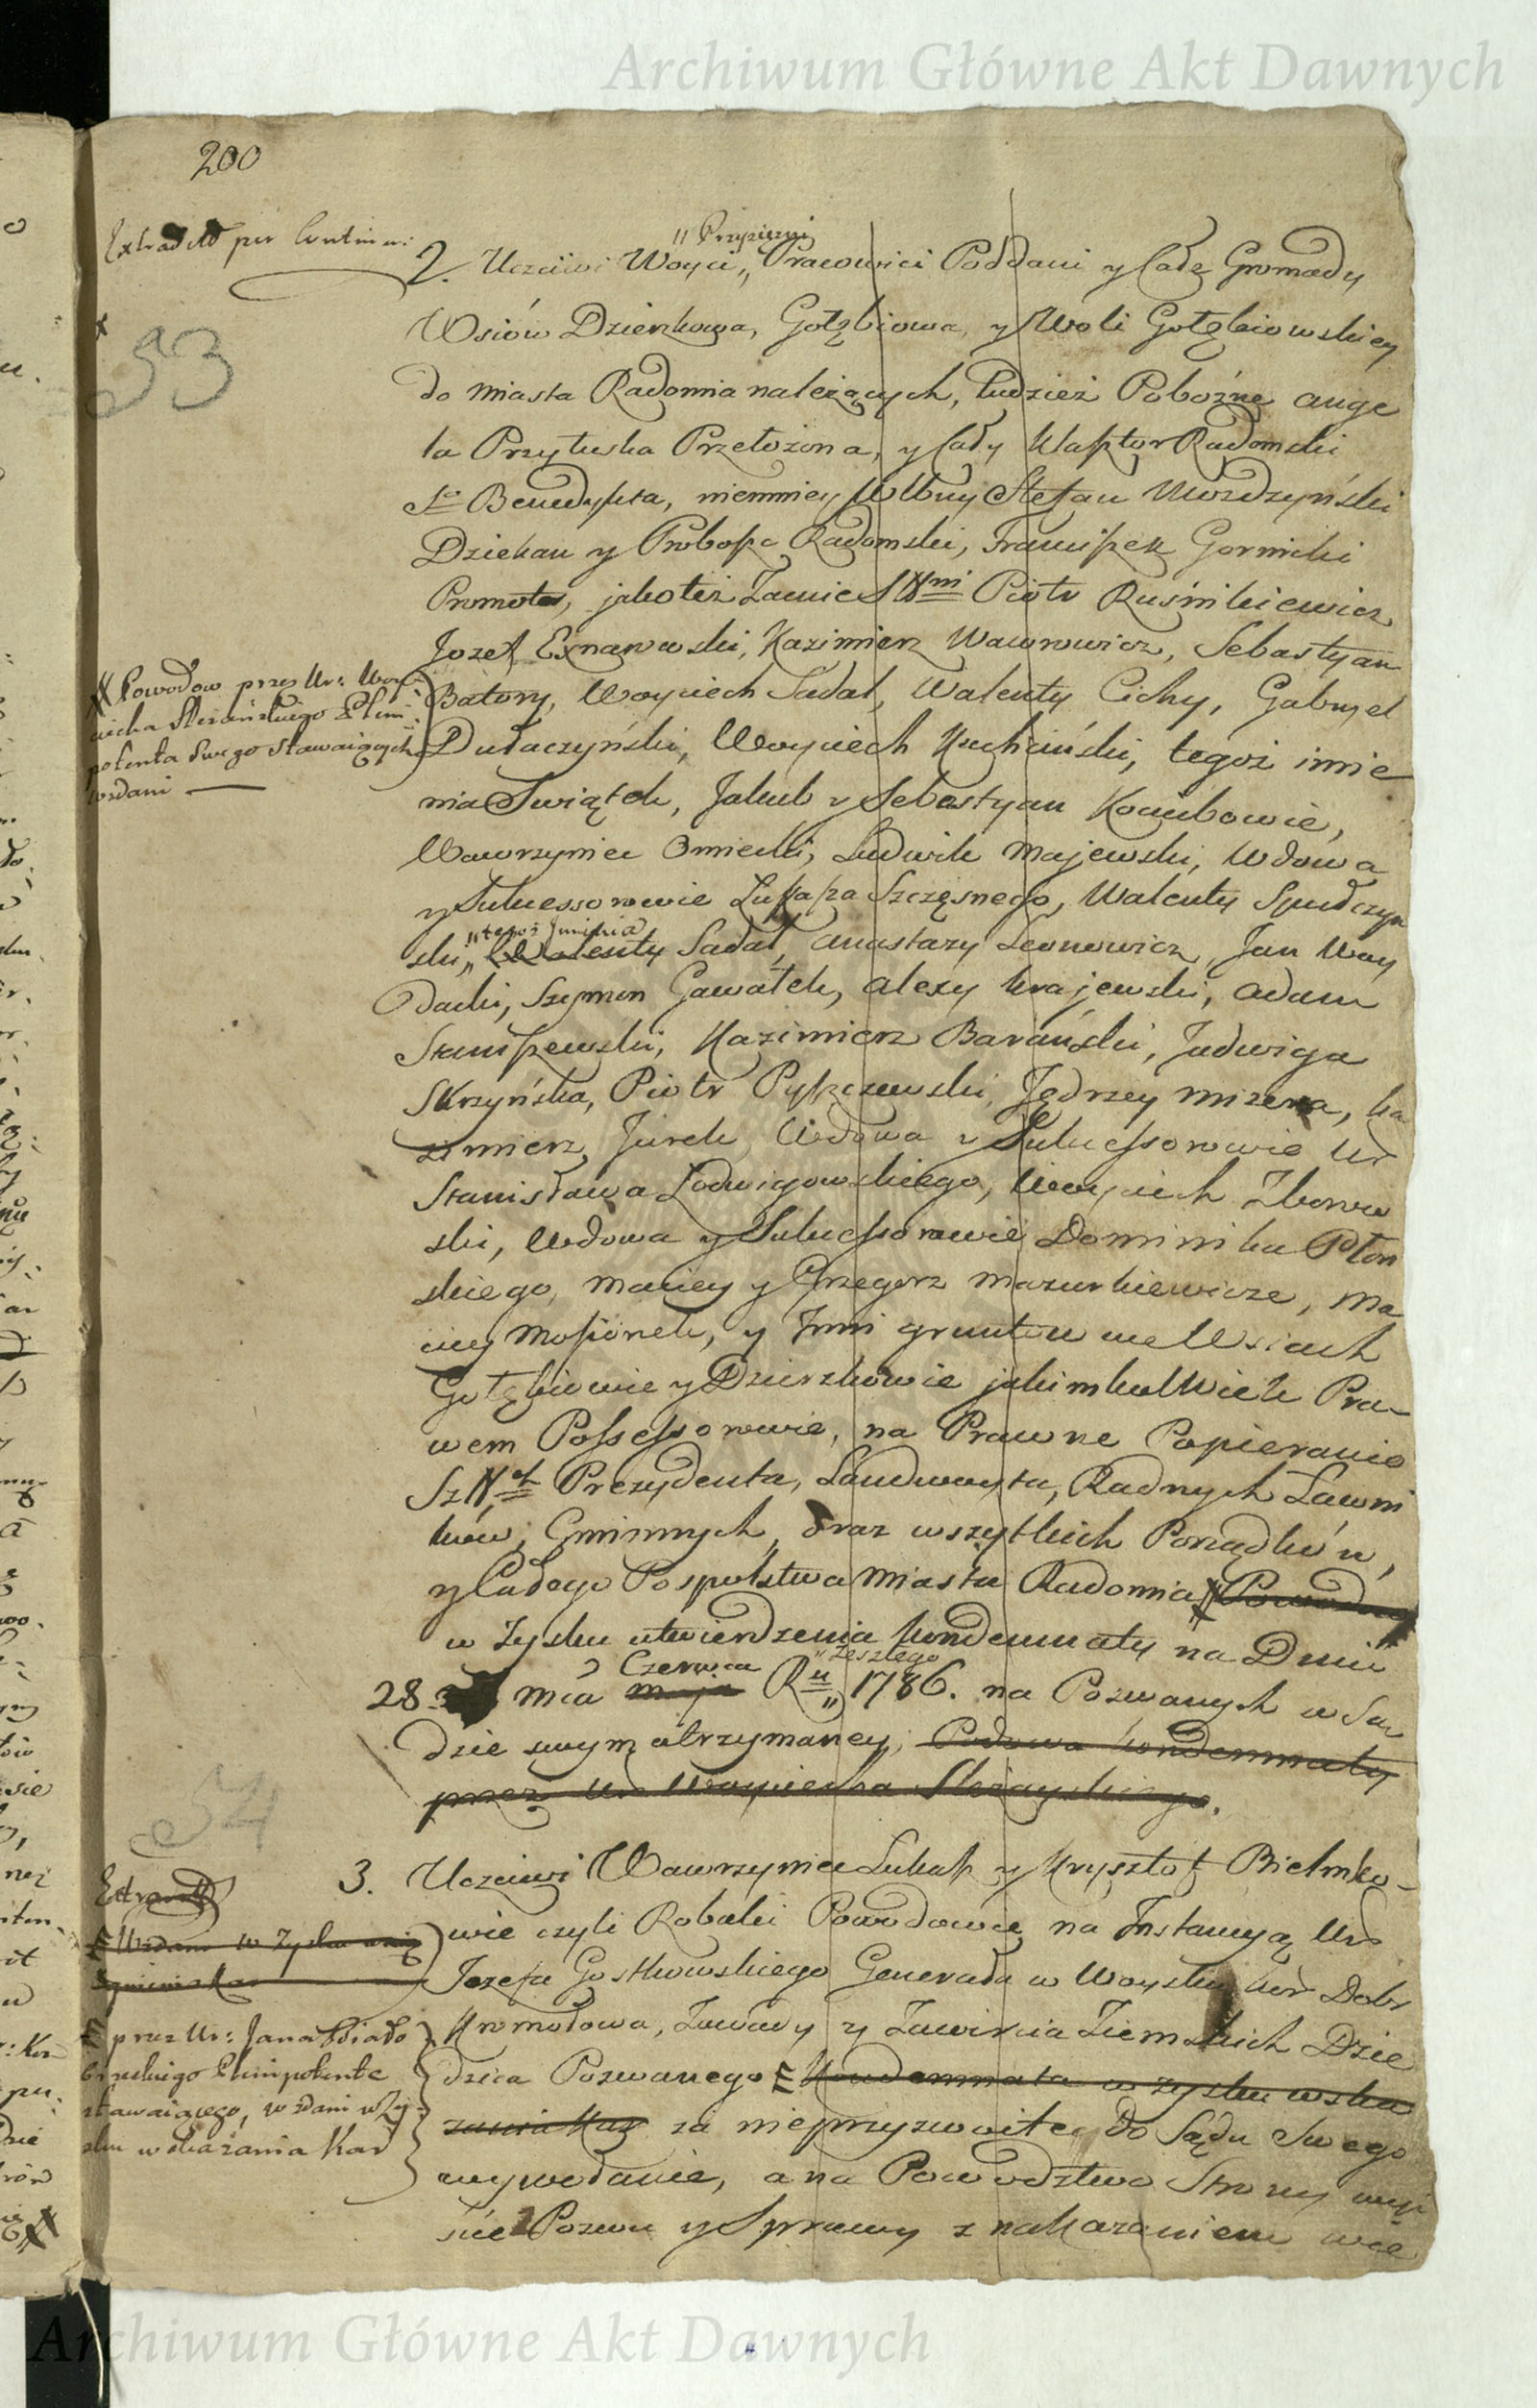 Archiwum Główne Akt Dawnych
200
Extradit per
53
2. Uczciwi Woyci, „Przysiężni Pracowici Poddani y Całe Gromady
Wsiów Dzierzkowa, Gołębiowa, y Woli Gołębiowskiey
do Miasta Radomia należących, tudzież Pobożne Ange
la Przyłuska Przełożona, y Cały Klasztor Radomski
S.o Benedykta, niemniey Wlbny Stefan Mozdzyński
Dziekan y Probosz Radomski, Franciszek Gornicki
Promotor, jakoteż Zacnie Sław.ni Piotr Kuśmikiewicz
Jozef Exnarowski, Kazimierz Wawrowicz, Sebastyan
Batory, Woyciech Sadał, Walenty Cichy, Gabryel
Dutaczyński, Woyciech Kuchciński, tegoż imie
nia Swiątek, Jakub y Sebastyan Kocubowie,
Wawrzyniec Omiecki, Ludwik Majewski, Wdowa
y Sukcessorowie Łukasza Szczęsnego, Walenty
ski, „tegoż Jmienia Walenty Sadał, Anastazy Leonowicz, Jan Woy
dacki, Szymon Gawałek, Alexy Krajewski, Adam
Staniszewski, Kazimierz Barański, Jadwiga
Skrzyńska, Piotr Pyszczewski, Jędrzey Mizera, Ka
zimierz Jurek, Wdowa y Sukcessorowie Ur
Stanisława Lodwigowskiego, Woyciech Zborow
ski, Wdowa y Sukcessorowie Dominika Płon
skiego, Maciey y Grzegorz Mazurkiewicze, Ma
ciey Mosionek, y Jnni gruntow we Wsiach
Gołębiowie y Dzierzkowie jakimkolwiek Pra-
wem Possessorowie, na Prawne Popieranie
Szl.ch Prezydenta, Landwoyta, Radnych Ławni
ków, Gminnych, oraz wszystkich Porządków,
y Całego Pospolstwa Miasta Radomia Powodow
w Zysku utwierdzenia Kondemnaty na Dniu
28 Mca Maja Czerwca R.u „zeszłego 1786. na Pozwanych w Są
dzie swym otrzymaney, Podowa Kondemnaty
przez Ur Woyciecha
X Powodow przez Ur: Woy
ciecha Skirańskiego Pleni
potenta Swego Stawaiących
wzdani —
54
3. Uczciwi Wawrzyniec Łukasz y Krysztof Bielmko-
wie czyli Robaki Powodowie na Jnstancyą Ur
Jozefa Gostkowskiego Generała w Woysku Kor Dobr
Kromołowa, Zawady y Zawircia Ziemskich Dzie
dzica Pozwanego Kondemnata w zysku wska
zania Kar za nieprzyzwoite Do Sądu Swego
wywołanie, a na Powodztwo Strony
ście Pozwu y Sprawy z nakazaniem
Extradit
Wzdani w Zysku
przez Ur: Jana
Plenipotenta
stawaiącego, wzdani w Zy-
sku wskazania Kar
Archiwum Główne Akt Dawnych